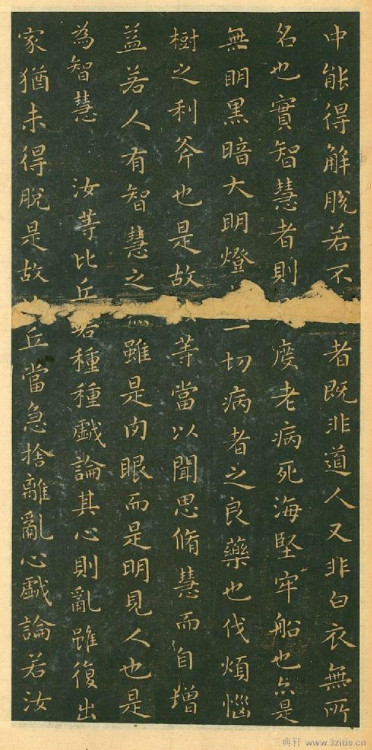 中能得解脫若不者既非道人又非白衣無所
名也實智慧者則度老病死海堅牢船也亦是
無明黑暗大明燈一切病者之良藥也伐煩惱
樹之利斧也是故等當以聞思脩慧而自增
益若人有智慧之雖是肉眼而是明見人也是
為智慧 汝等比丘若種種戲論其心則亂雖復出
家猶未得脫是故丘當急捨離亂心戲論若汝
www.3zitie.cn